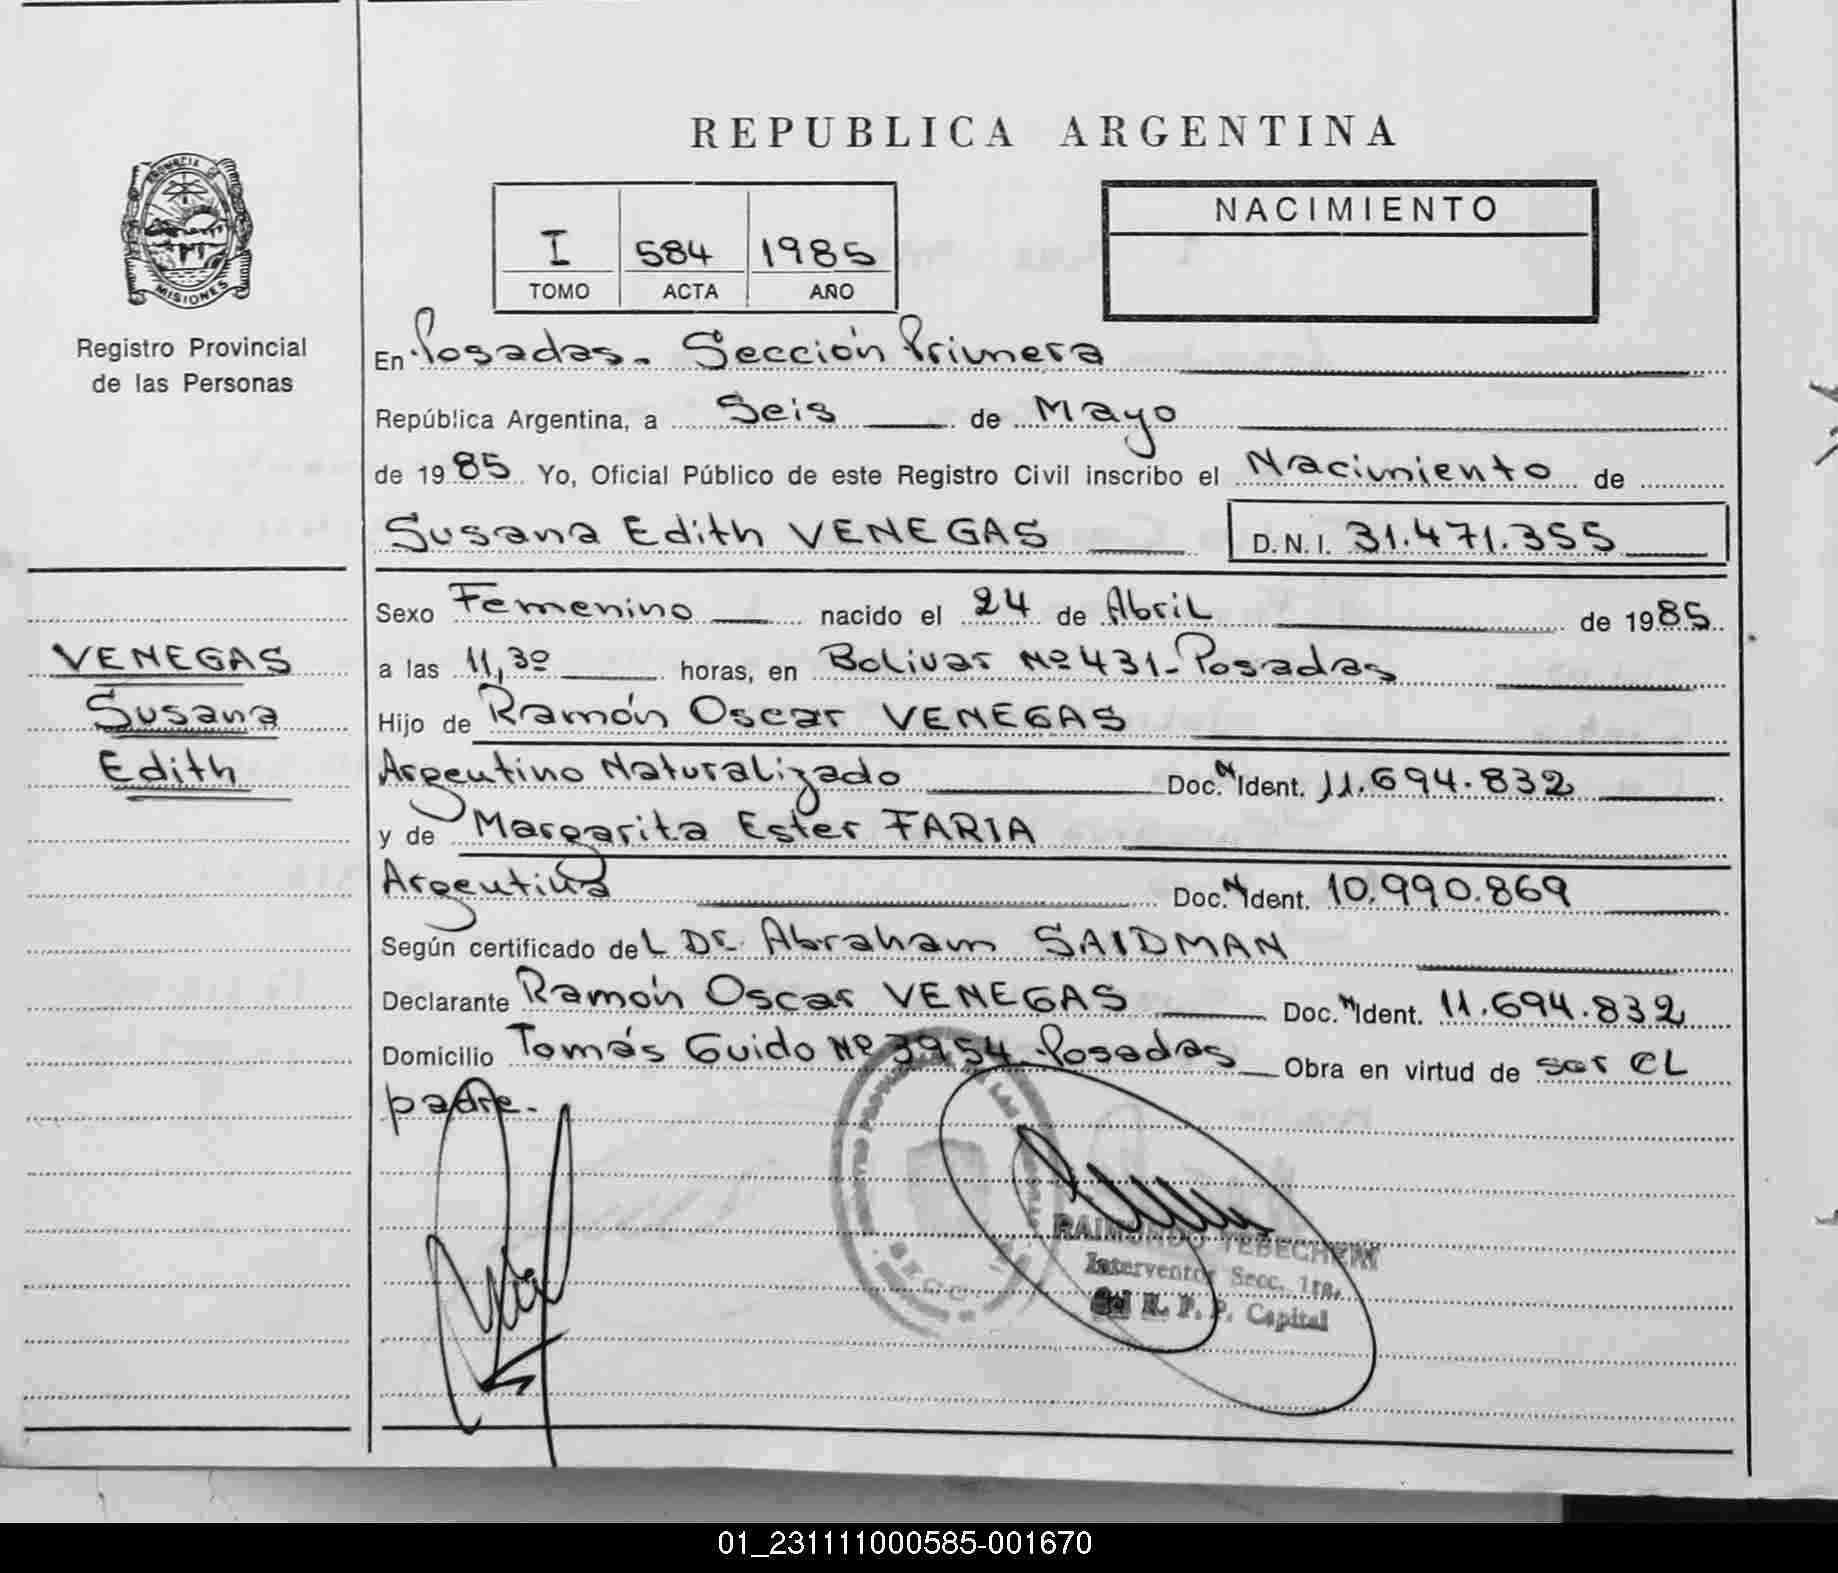 REPUBLICA ARGENTINA
PROVINCIA DE
MISIONES
Registro Provincial
de las Personas
I 584 1985
TOMO ACTA AÑO
NACIMIENTO
En Posadas. Sección Primera
República Argentina, a Seis de Mayo
de 1985 Yo, Oficial Público de este Registro Civil inscribo el Nacimiento de
Susana Edith VENEGAS D.N.I. 31.471.355
VENEGAS
Susana
Edith
Sexo Femenino nacido el 24 de Abril de 1985
a las 11,30 horas, en Bolivar Nº 431-Posadas
Hijo de Ramón Oscar VENEGAS
Argentino Naturalizado Doc. N Ident. 11.694.832
y de Margarita Ester FARIA
Argentina Doc. N Ident. 10.990.869
Según certificado del Dr. Abraham SAIDMAN
Declarante Ramón Oscar VENEGAS Doc. N Ident. 11.694.832
Domicilio Tomás Guido Nº 3954-Posadas Obra en virtud de ser el
padre.
RAIMUNDO
Interventor Secc. 1ra.
del R. P. P. Capital
01_231111000585-001670